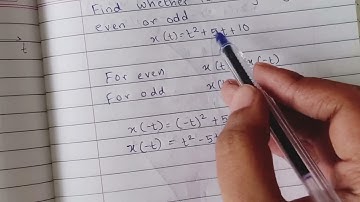 Find whether
even or odd
x(t)=t²+5t+10
t
For even x(t x(-t)
For odd x(
x(-t)=(-t)²+5
x(-t) = t²-5t